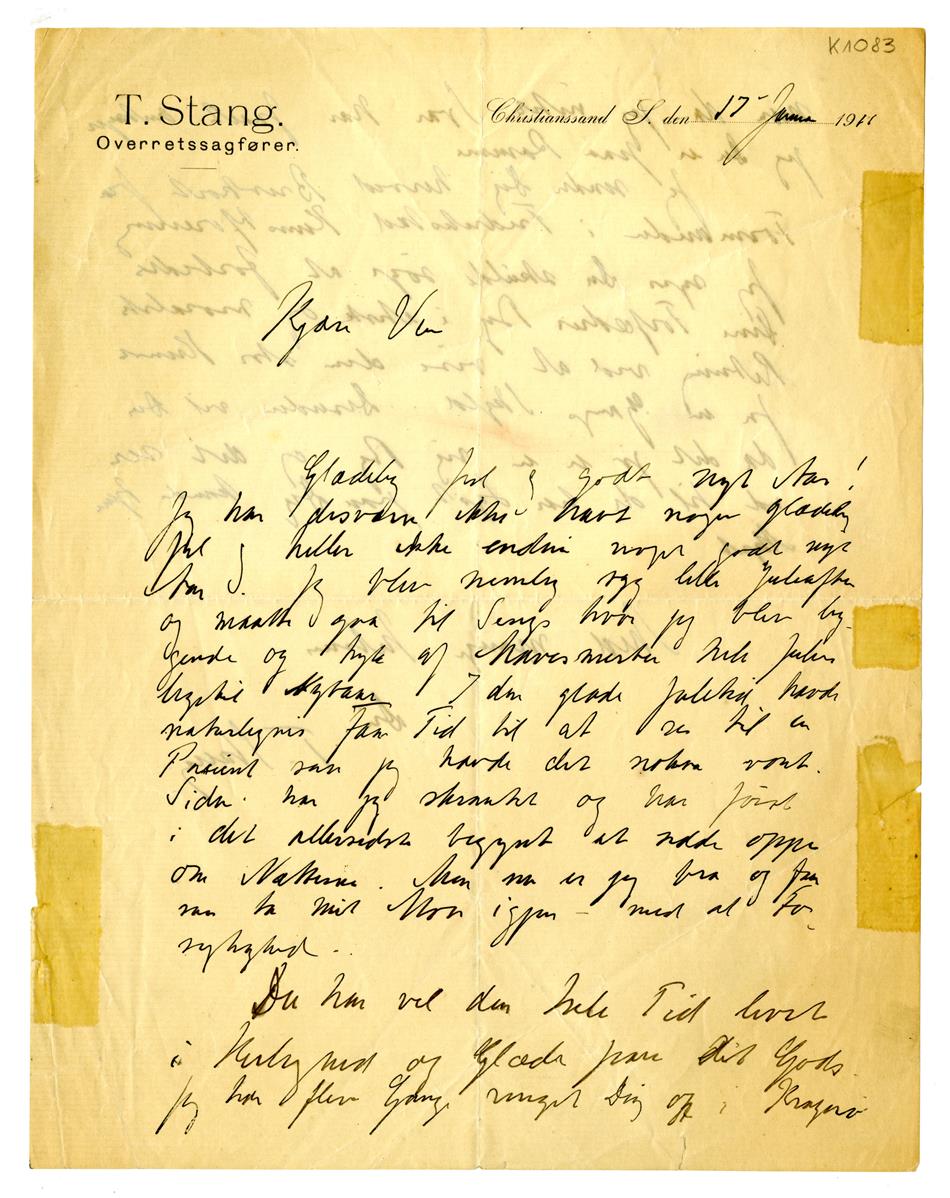 K1083
T. Stang.
Overretssagfører.
Christianssand S. den 17 Januar 1911
Kjære Ven
Glædelig Jul og godt nyt Aar!
Jeg har desværre ikke havt nogen glædelig
Jul og heller ikke endnu noget godt nyt
Aar. Jeg blev nemlig syg lille Juleaften
og maatte gaa til Sengs hvor jeg blev lig-
gende og af Mavesmerter hele Julen
ligetil Nytaar. I den glade Juletid havde
naturligvis faa Tid til at se til en
Pasient saa jeg havde det nokaa vont.
Siden har jeg skrantet og har først
i det allersidste begyndt at sidde oppe
om Nætterne. Men nu er jeg bra og faar
saa ta mit Mon igjen – med al For-
sigtighed.
Du har vel den hele Tid levet
i Herlighed og Glæde paa Dit Gods.
Jeg har flere Gange ringet Dig op i Kragerø